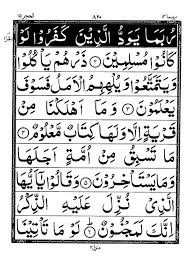 ربما ١٤
٨٢٥
الحجر ١٥
رُبَمَا يَوَدُّ الَّذِيْنَ كَفَرُوْا لَوْ
كَانُوْا مُسْلِمِيْنَ ۝٢ ذَرْهُمْ يَاْكُلُوْا
وَيَتَمَتَّعُوْا وَيُلْهِهِمُ الْاَمَلُ فَسَوْفَ
يَعْلَمُوْنَ ۝٣ وَ مَاۤ اَهْلَكْنَا مِنْ
قَرْيَةٍ اِلَّا وَلَهَا كِتَابٌ مَّعْلُوْمٌ ۝٤
مَا تَسْبِقُ مِنْ اُمَّةٍ اَجَلَهَا
وَمَا يَسْتَاْخِرُوْنَ ۝٥ وَقَالُوْا يٰۤاَيُّهَا
الَّذِيْ نُزِّلَ عَلَيْهِ الذِّكْرُ
اِنَّكَ لَمَجْنُوْنٌ ۝٦ لَوْ مَا تَاْتِيْنَا